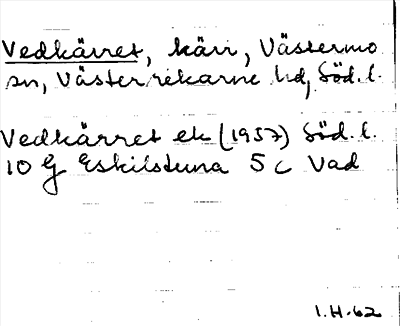 Vedkärret, kärr, Västermo
sn, Västerrekarne hd, Söd. l.
Vedkärret ek (1957) Söd. l.
10 G Eskilstuna 5 c Vad
I.H-62